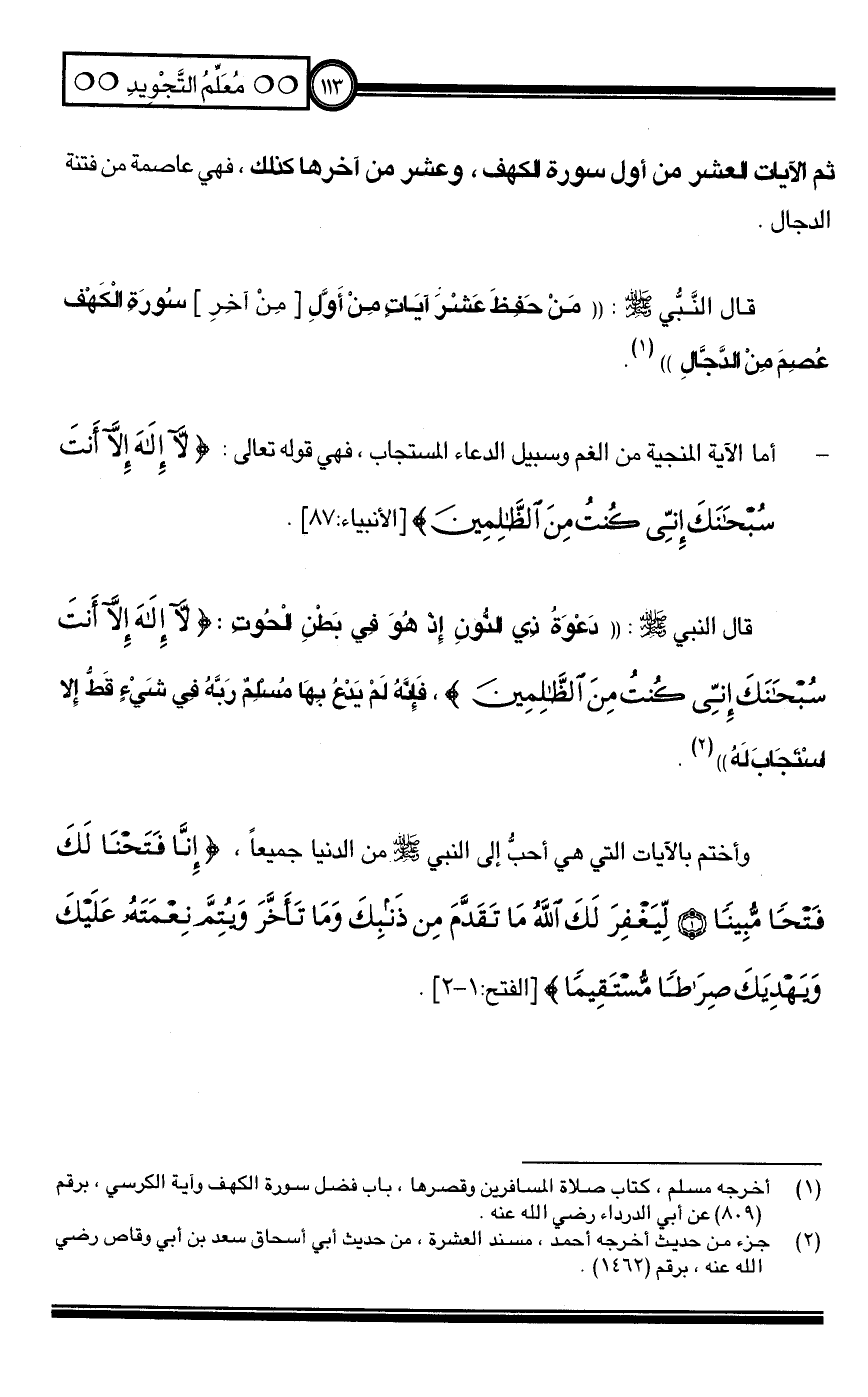 ○○ مُعَلِّمُ التَّجْوِيدِ ○○ ١١٣
ثم الآيات العشر من أول سورة الكهف ، وعشر من آخرها كذلك ، فهي عاصمة من فتنة
الدجال .
قال النَّبيُّ ﷺ : (( مَنْ حَفِظَ عَشْرَ آيَاتٍ مِنْ أَوَّلِ [ مِنْ آخِرِ ] سُورَةِ الْكَهْفِ
عُصِمَ مِنْ الدَّجَّالِ )) (١).
– أما الآية المنجية من الغم وسبيل الدعاء المستجاب ، فهي قوله تعالى : ﴿ لَّآ إِلَٰهَ إِلَّآ أَنتَ
سُبْحَٰنَكَ إِنِّى كُنتُ مِنَ ٱلظَّٰلِمِينَ ﴾ [الأنبياء:٨٧] .
قال النبي ﷺ : (( دَعْوَةُ ذِي النُّونِ إِذْ هُوَ فِي بَطْنِ الْحُوتِ : ﴿ لَّآ إِلَٰهَ إِلَّآ أَنتَ
سُبْحَٰنَكَ إِنِّى كُنتُ مِنَ ٱلظَّٰلِمِينَ ﴾ ، فَإِنَّهُ لَمْ يَدْعُ بِهَا مُسْلِمٌ رَبَّهُ فِي شَيْءٍ قَطُّ إِلا
اسْتَجَابَ لَهُ )) (٢) .
وأختم بالآيات التي هي أحبُّ إلى النبي ﷺ من الدنيا جميعاً ، ﴿ إِنَّا فَتَحْنَا لَكَ
فَتْحًا مُّبِينًا ۝١ لِّيَغْفِرَ لَكَ ٱللَّهُ مَا تَقَدَّمَ مِن ذَنۢبِكَ وَمَا تَأَخَّرَ وَيُتِمَّ نِعْمَتَهُۥ عَلَيْكَ
وَيَهْدِيَكَ صِرَٰطًا مُّسْتَقِيمًا ﴾ [الفتح:١–٢] .
(١) أخرجه مسلم ، كتاب صلاة المسافرين وقصرها ، باب فضل سورة الكهف وآية الكرسي ، برقم
(٨٠٩) عن أبي الدرداء رضي الله عنه .
(٢) جزء من حديث أخرجه أحمد ، مسند العشرة ، من حديث أبي أسحاق سعد بن أبي وقاص رضي
الله عنه ، برقم (١٤٦٢) .